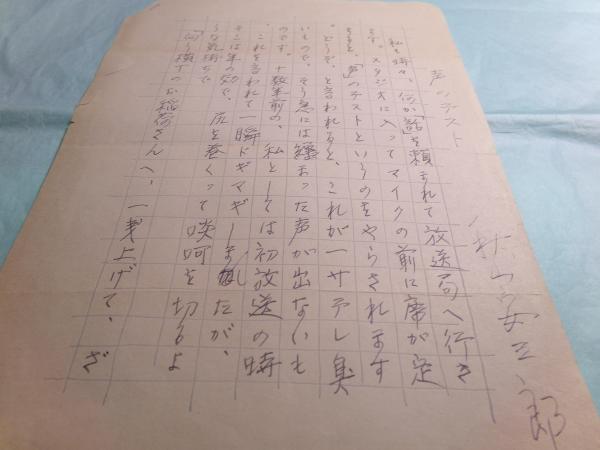 声のテスト
秋山安三郎
私も時々、何か「話」を頼まれて放送局へ行き
ます。スタジオに入ってマイクの前に席が定
まると、「声のテスト」というのをやらされます
。どうぞ、と言われると、これが一寸テレ臭
いもので、そう急には纏まった声が出ないも
のです。十数年前の、私としては初放送の時
、これを言われて一瞬ドギマギしましたが、
そこは年の功で、尻を巻くって啖呵を切るよ
うな気持ちで
「向う横丁のお稲荷さんへ、一銭上げて、ざ